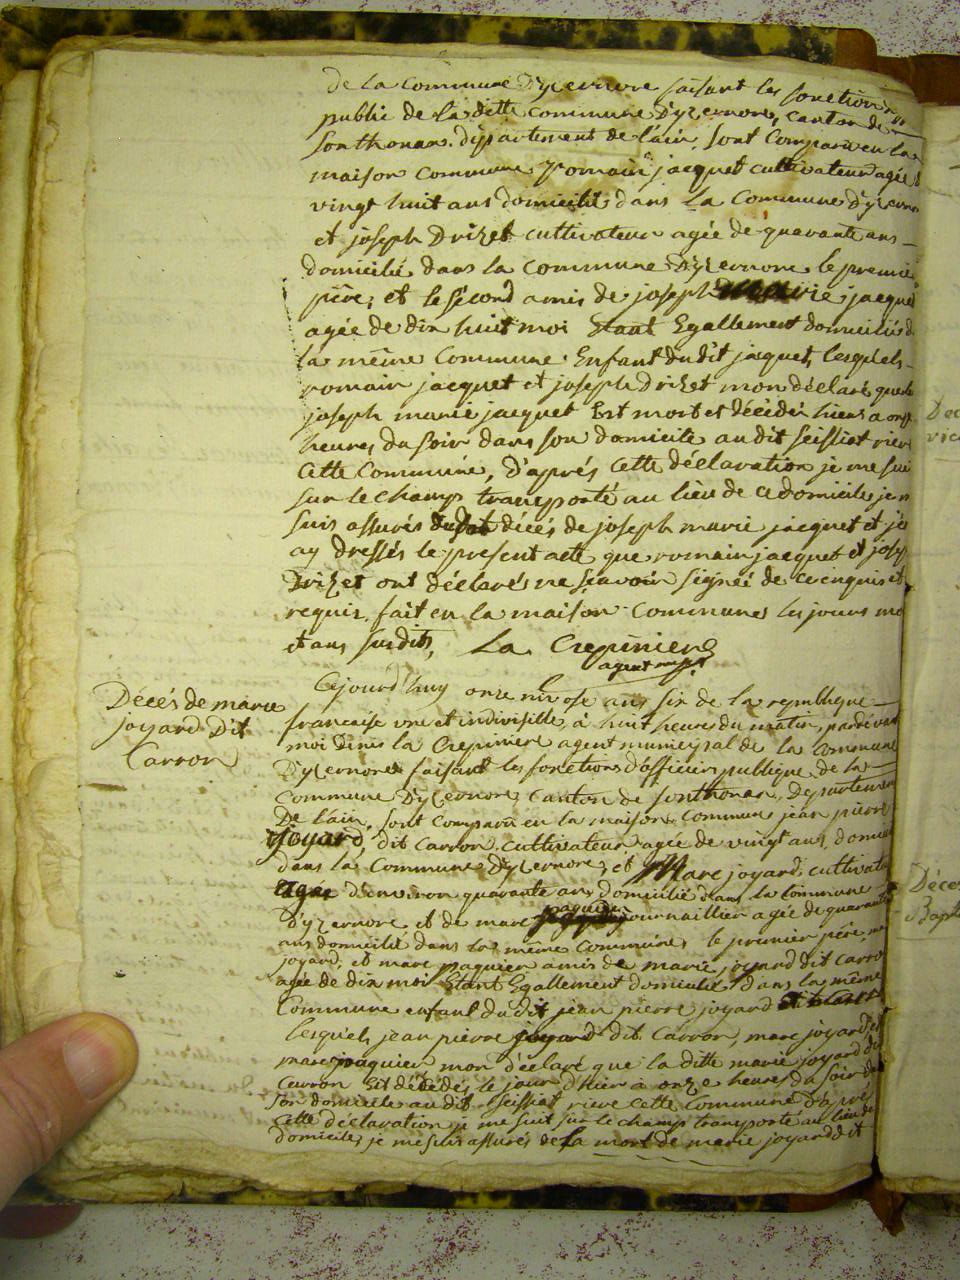 de la Commune Dyzernore faisant les fonctions
public de la ditte commune Dyzernore, canton de
Sonthonax. Département de lain, sont Comparu en la
maison Commune Romain jacquet cultivateur agée
vingt huit ans domicilié dans La Commune Dyzernore
et joseph Drizet cultivateur agée de quarante ans
domicilié dans la commune Dyzernore le premier
père, et le second amis de joseph marie jacquet
agée de dix huit moi Etant Egallement domicilié d
la même Commune. Enfant du dit jacquet, lesquels
romain jacquet et joseph Drizet mon déclaré que le
joseph marie jacquet Est mort et décédé hier a onze
heures du soir dans son domicile au dit Seissiat rière
Cette Commune, d'après cette déclaration je me suis
sur le champ transporté au lieu de ce domicile, je m
suis assurés du décés de joseph marie jacquet et j'e
ay dressés le présent acte que romain jacquet et josep
Drizet ont déclarés ne sçavoir signée de ce enquis et
requis fait en la maison Commune les jours mo
et ans susdits, La Crepiniere
agent mpl
Décés de marie
joyard Dit
Carron
Cejourd'huy onze nivose ans six de la republique
francaise une et indivisible, à huit heure du matin, pardevant
moi Denis la Crepiniere agent municipal de la Commune
Dyzernore faisant les fonctions d'officier publique de la
Commune Dyzernore, canton de Sonthonax, Departement
De lain, sont Comparu en la maison commune jean pierre
joyard, dit Carron cultivateur agée de vingt ans, domicil
dans la Commune Dyzernore, et Marc joyard, cultivateur
agée d'environ quarante ans domicilié dans la Commune
Dyzernore et de marc paquier journaillier agée de quarante
ans domicilié dans la même Commune le premier père,
joyard, et marc paquier amis de marie joyard dit Carro
agée de dix moi Etant Egallement domicilié dans la même
Commune enfant du dit jean pierre joyard
lesquels jean pierre joyard dit Carron, marc joyard et
marc paquier mon déclaré que la ditte marie joyard dit
Carron Est décédés le jour d'hier à onze heures du soir da
son domicile au dit Seissiat rière cette Commune d'après
Cette déclaration je me suit sur le champ transporté au lieu de
domicile, je me suis assurés de la mort de marie joyard dit